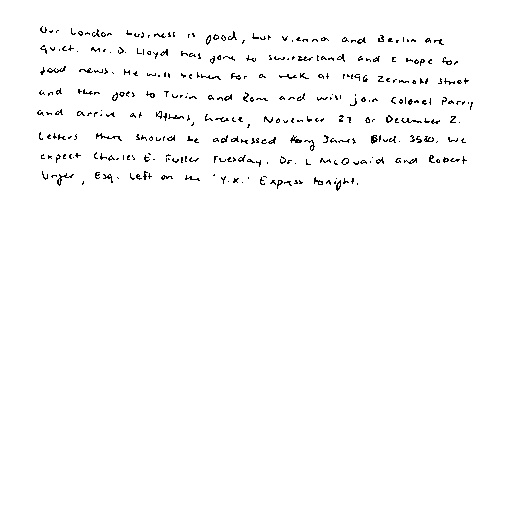 Our London business is good, but Vienna and Berlin are
quiet. Mr. D. Lloyd has gone to Switzerland and I hope for
good news. He will be there for a week at 1496 Zermott Street
and then goes to Turin and Rome and will join Colonel Parry
and arrive at Athens, Greece, November 27 or December 2.
Letters there should be addressed King James Blvd. 3580. We
expect Charles E. Fuller Tuesday. Dr. L McQuaid and Robert
Unger, Esq. left on the 'Y.X.' Express tonight.